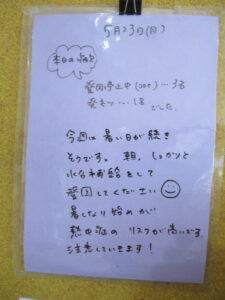 5月23日(月)
本日の病欠
登園停止中(コロナ)…3名
発ネツ…1名
でした。
今週は暑い日が続き
そうです。朝、しっかりと
水分補給をして
登園してください
暑くなり始めが
熱中症のリスクが高いです。
注意していきます!